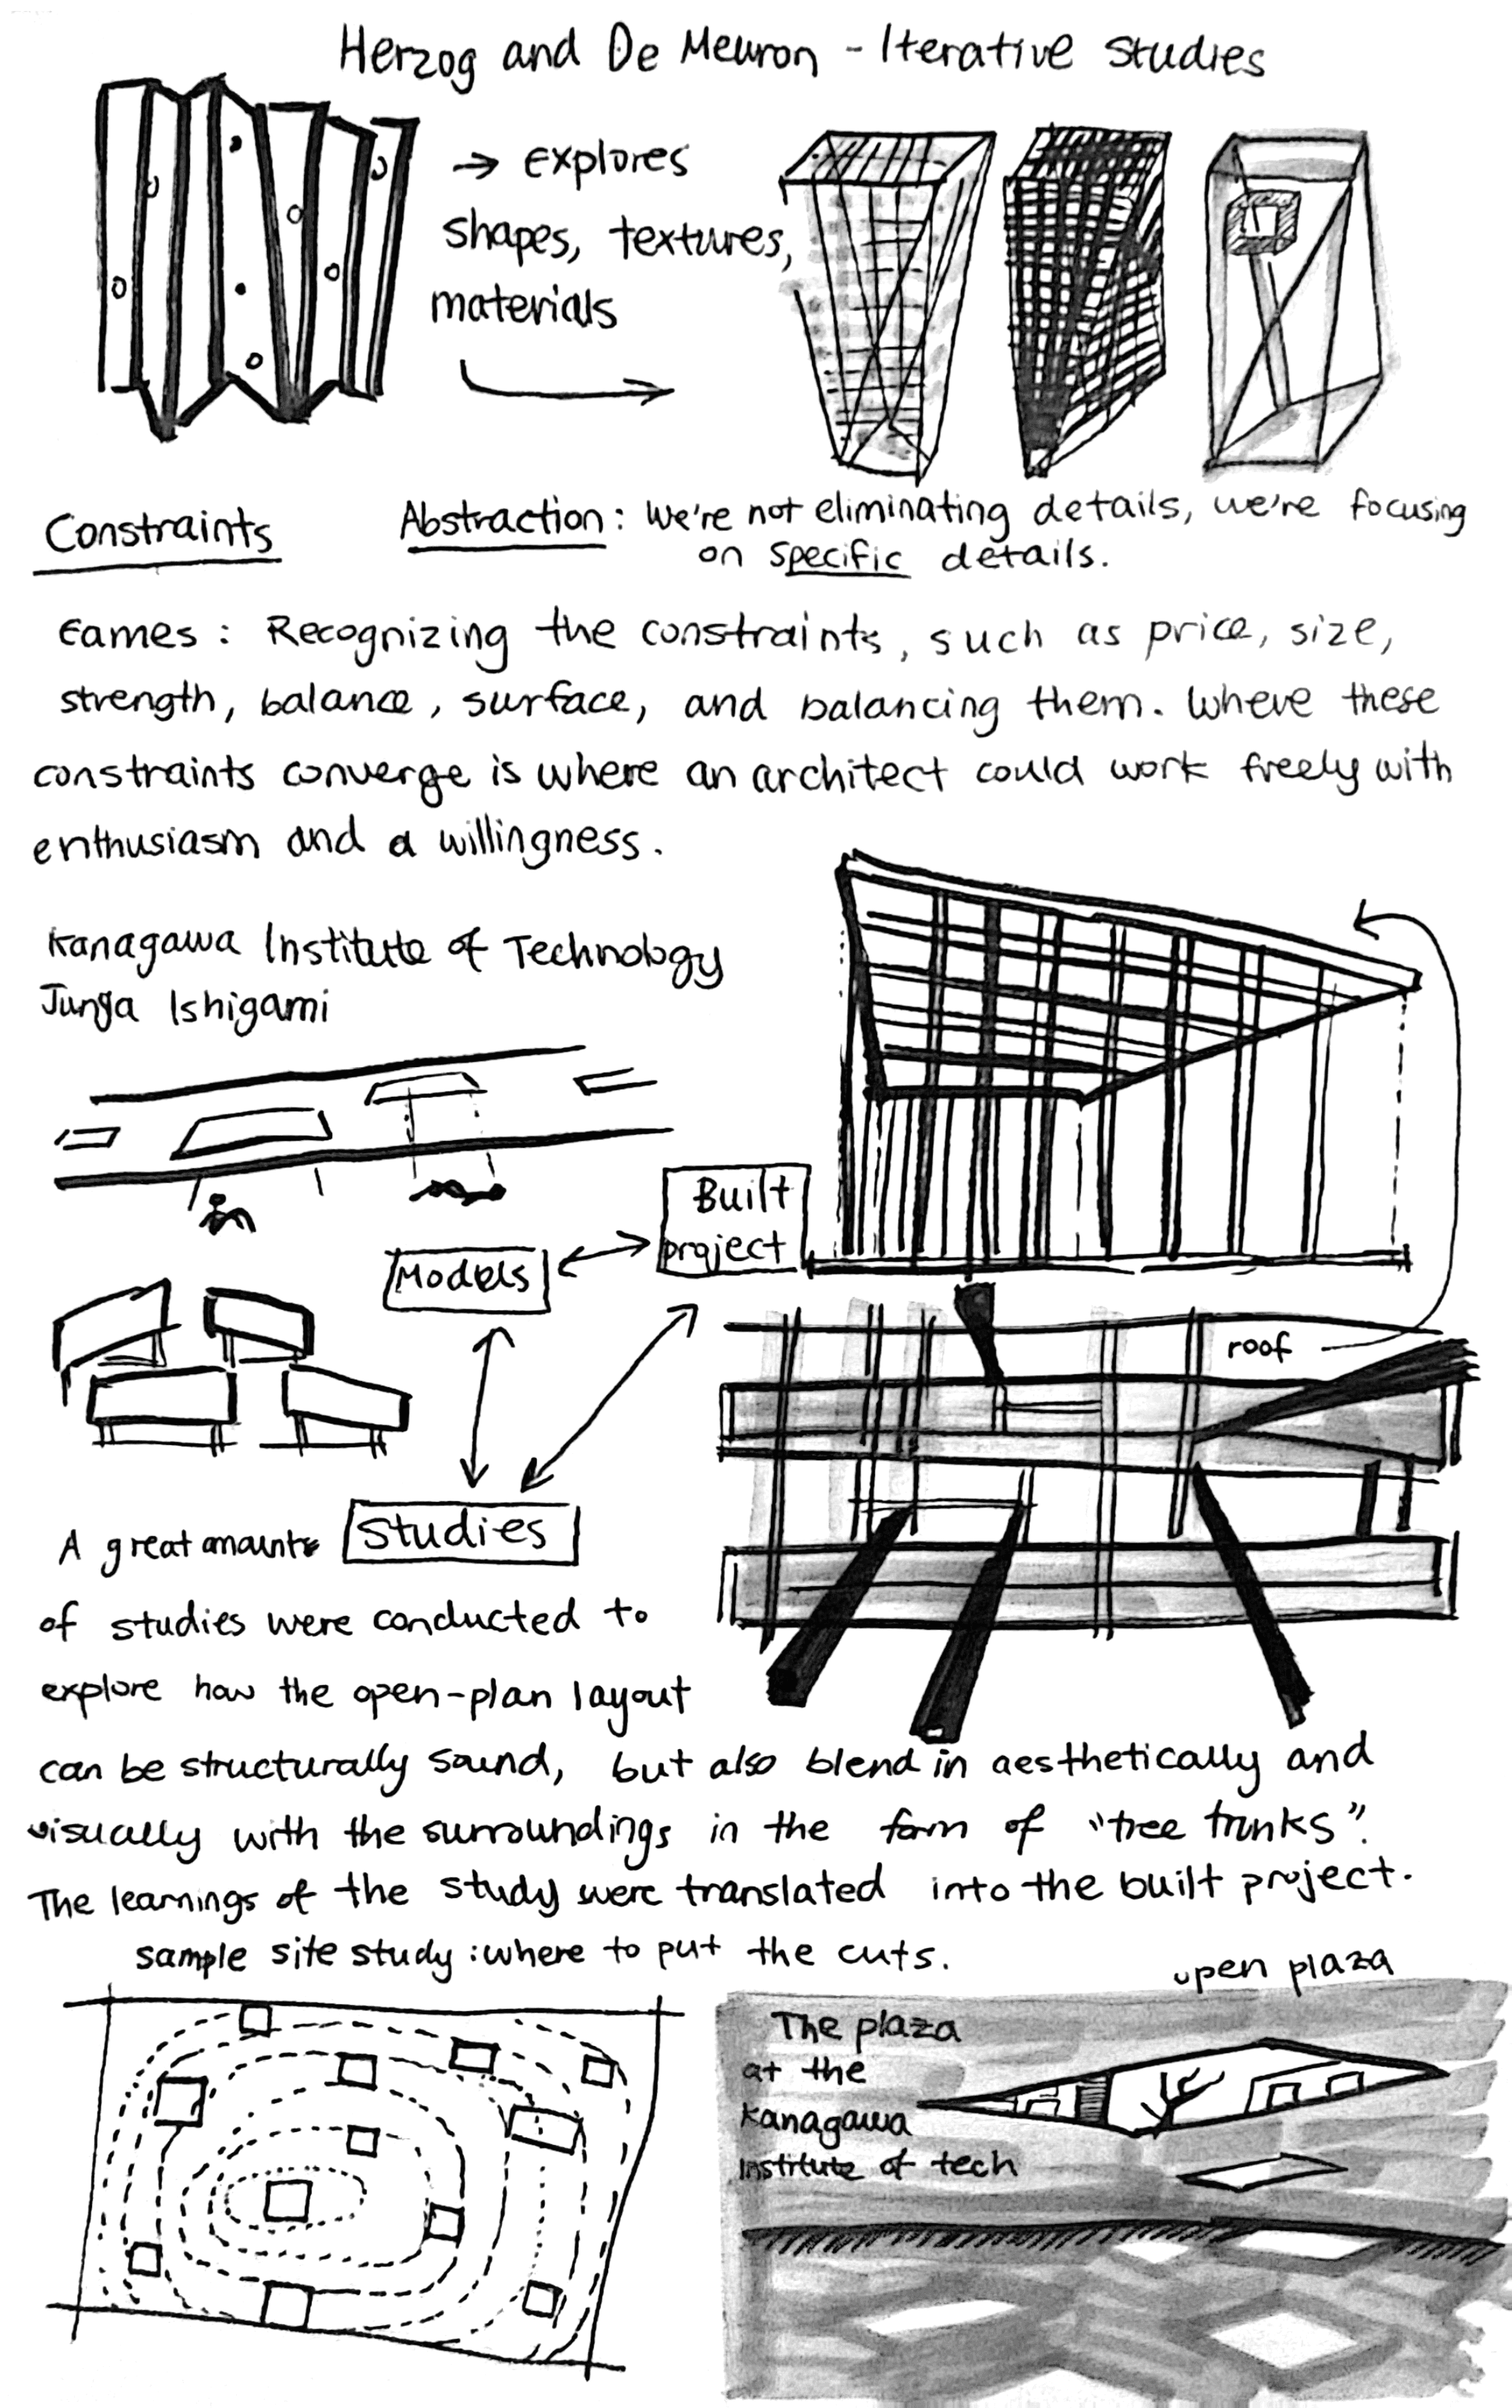 Herzog and De Meuron - Iterative Studies
→ explores
shapes, textures,
materials
Constraints
Abstraction: We're not eliminating details, we're focusing
on specific details.
Eames: Recognizing the constraints, such as price, size,
strength, balance, surface, and balancing them. Where these
constraints converge is where an architect could work freely with
enthusiasm and a willingness.
Kanagawa Institute of Technology
Junya Ishigami
Built
project
Models
roof
Studies
A great amount
of studies were conducted to
explore how the open-plan layout
can be structurally sound, but also blend in aesthetically and
visually with the surroundings in the form of "tree trunks".
The learnings of the study were translated into the built project.
sample site study: where to put the cuts.
open plaza
The plaza
at the
Kanagawa
Institute of tech